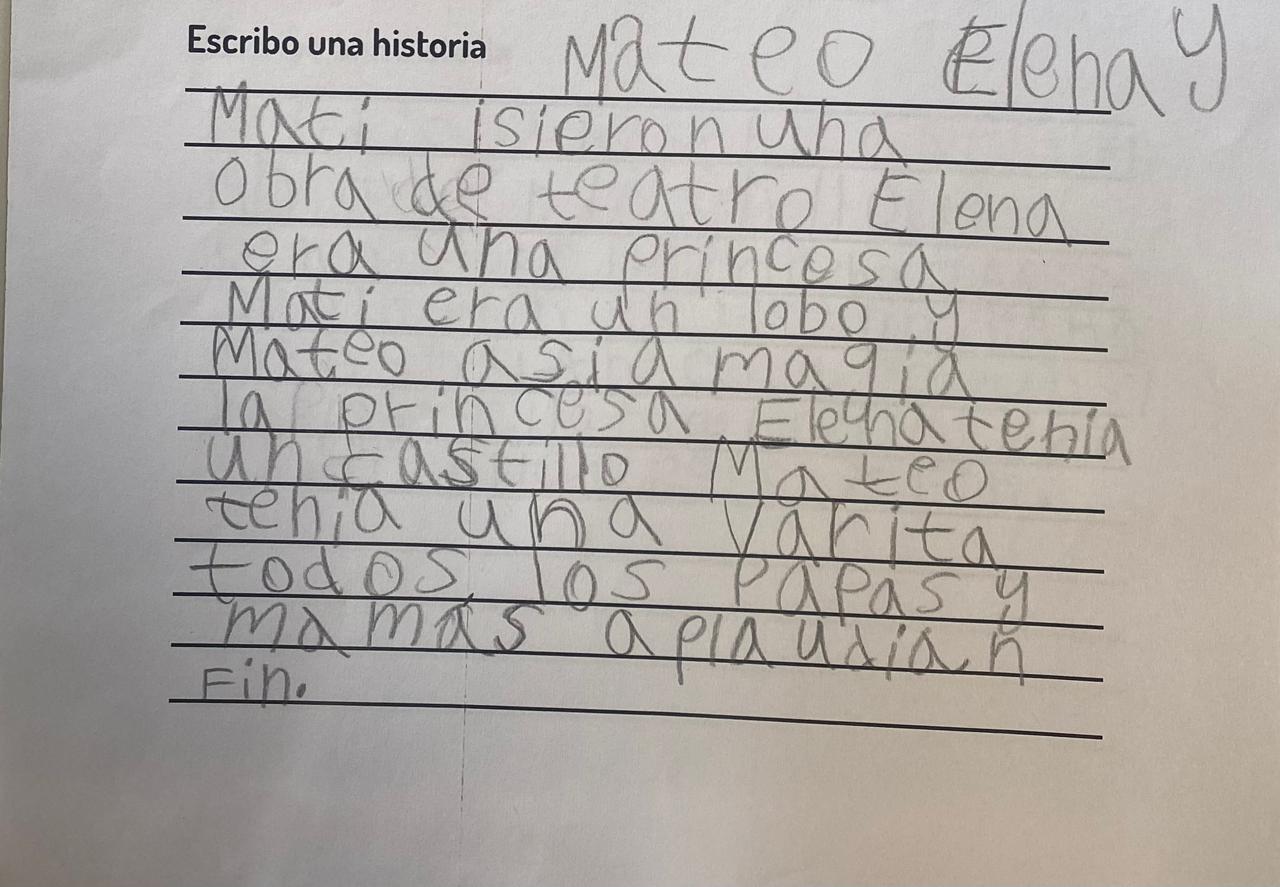 Escribo una historia Mateo Elena y
Mati isieron una
obra de teatro Elena
era una princesa
Mati era un lobo y
Mateo asia magia
la princesa Elena tenia
un castillo Mateo
tenia una varita
todos los papas y
mamas aplaudian
Fin.